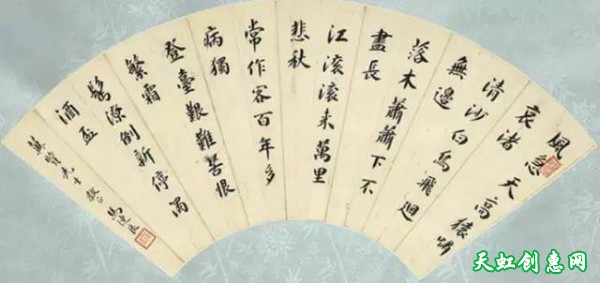 風急
天高猿嘯
哀渚
清沙白鳥飛迴
無邊
落木蕭蕭下不
盡長
江滾滾来萬里
悲秋
常作客百年多
病獨
登臺艱難苦恨
繁霜
鬢潦倒新停濁
酒盃
先生
天虹创惠网